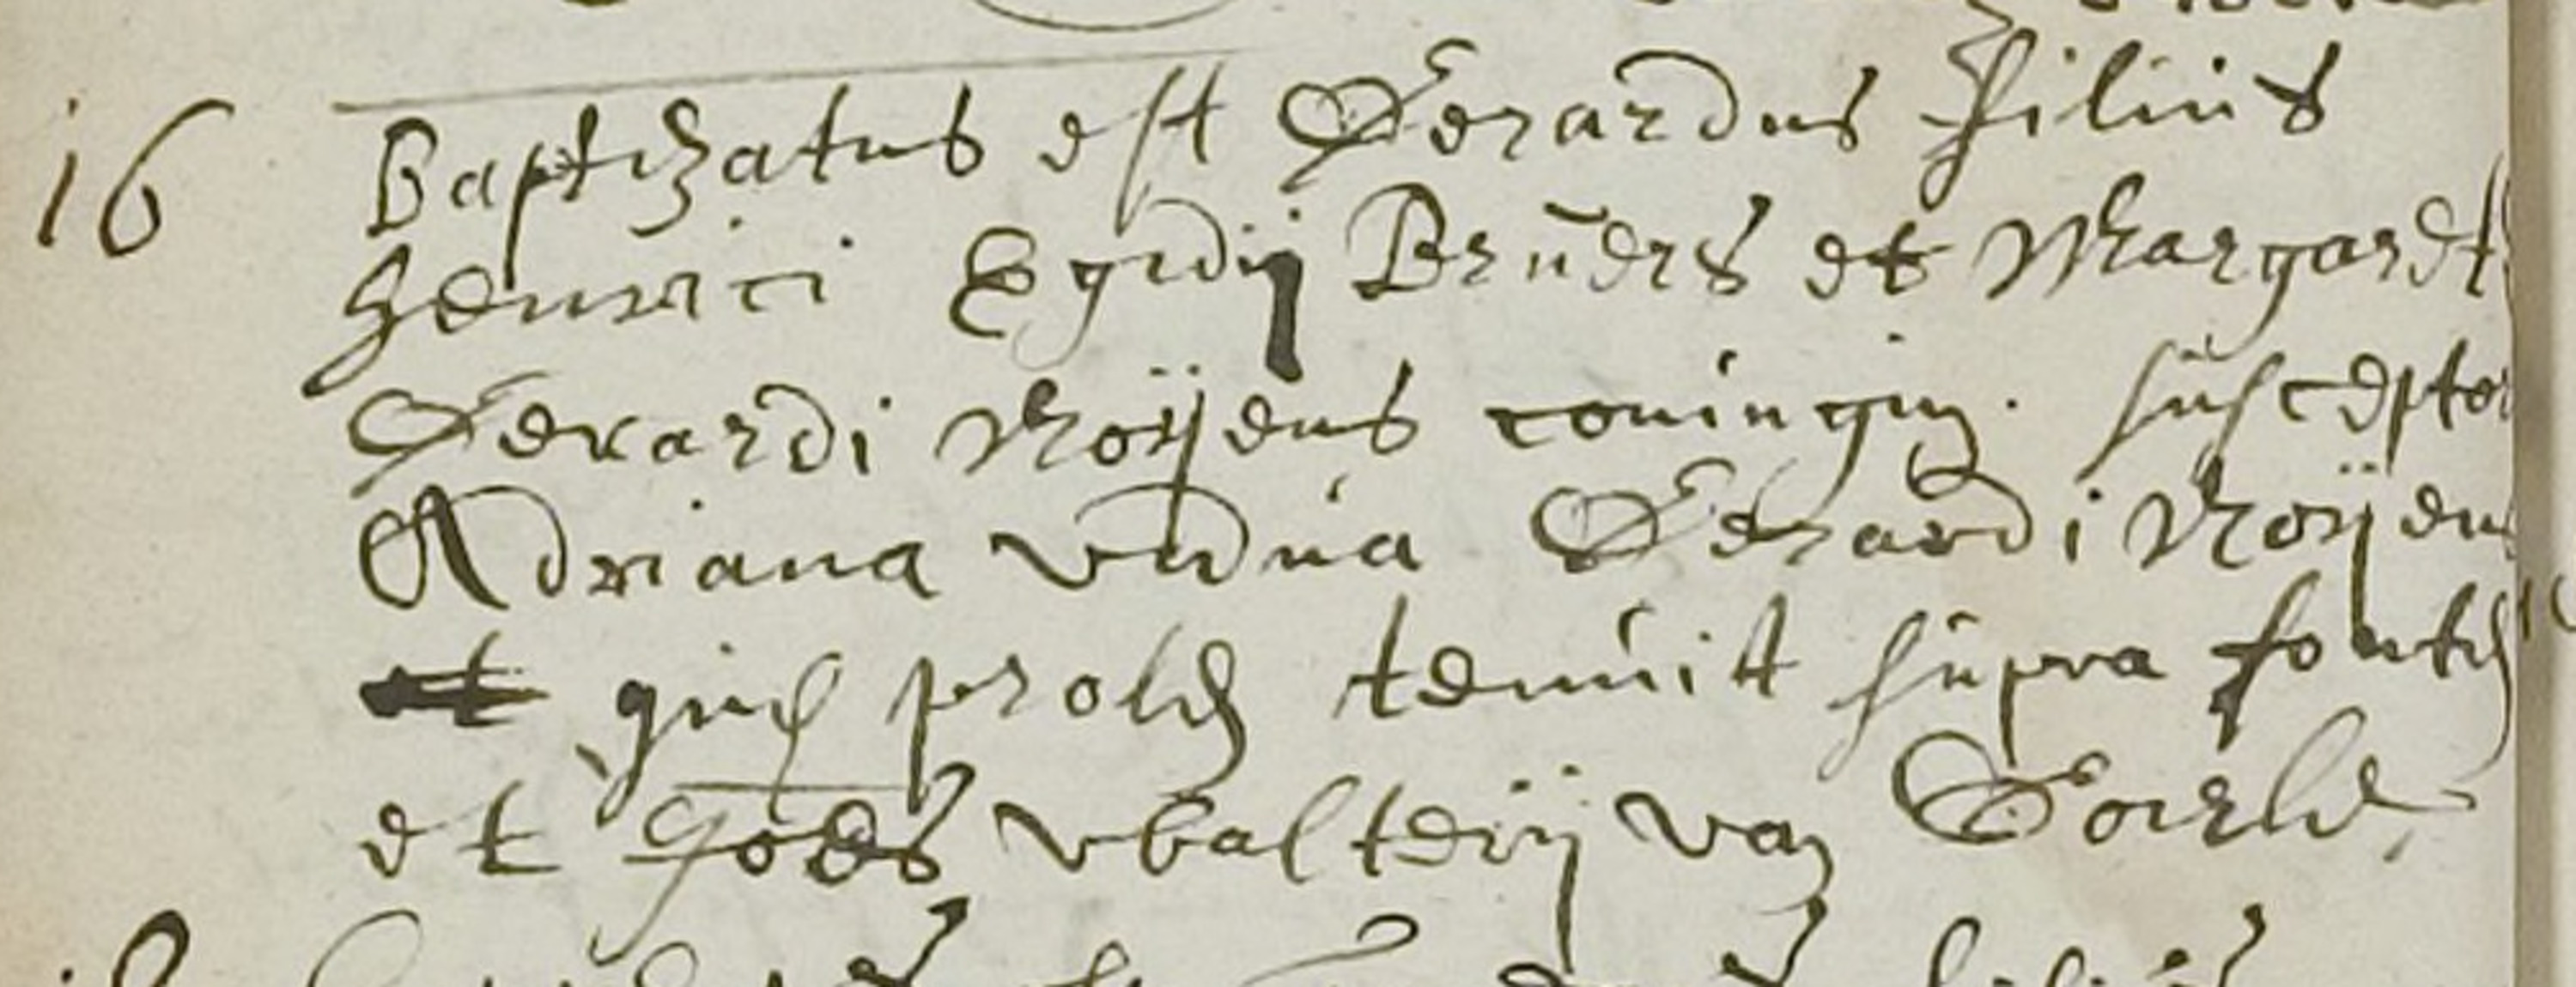 16 Baptizatus est Gerardus filius
Henrici Egidij Brüders et Margaret
Gerardi Noÿens coniugū. susceptor
Adriana vidua Gerardi Noÿens
et prolē tenuit supra fontē
et Godef walterij van Goirle